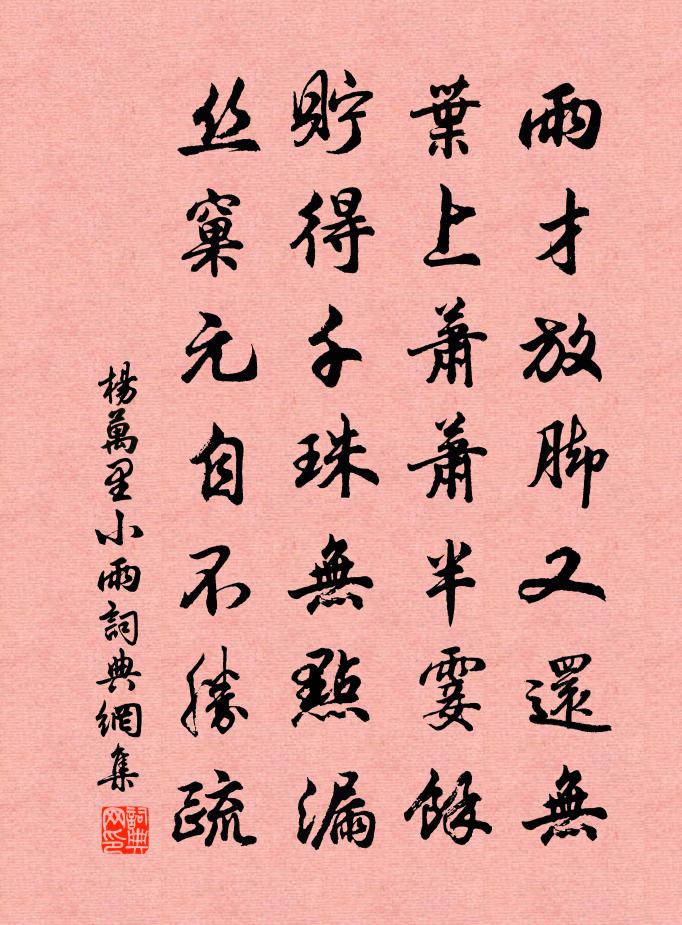 雨才放脚又還無
葉上蕭蕭半霎餘
貯得千珠無點漏
丝窠元自不勝疏
楊萬里小雨詞典網集
詞典网印